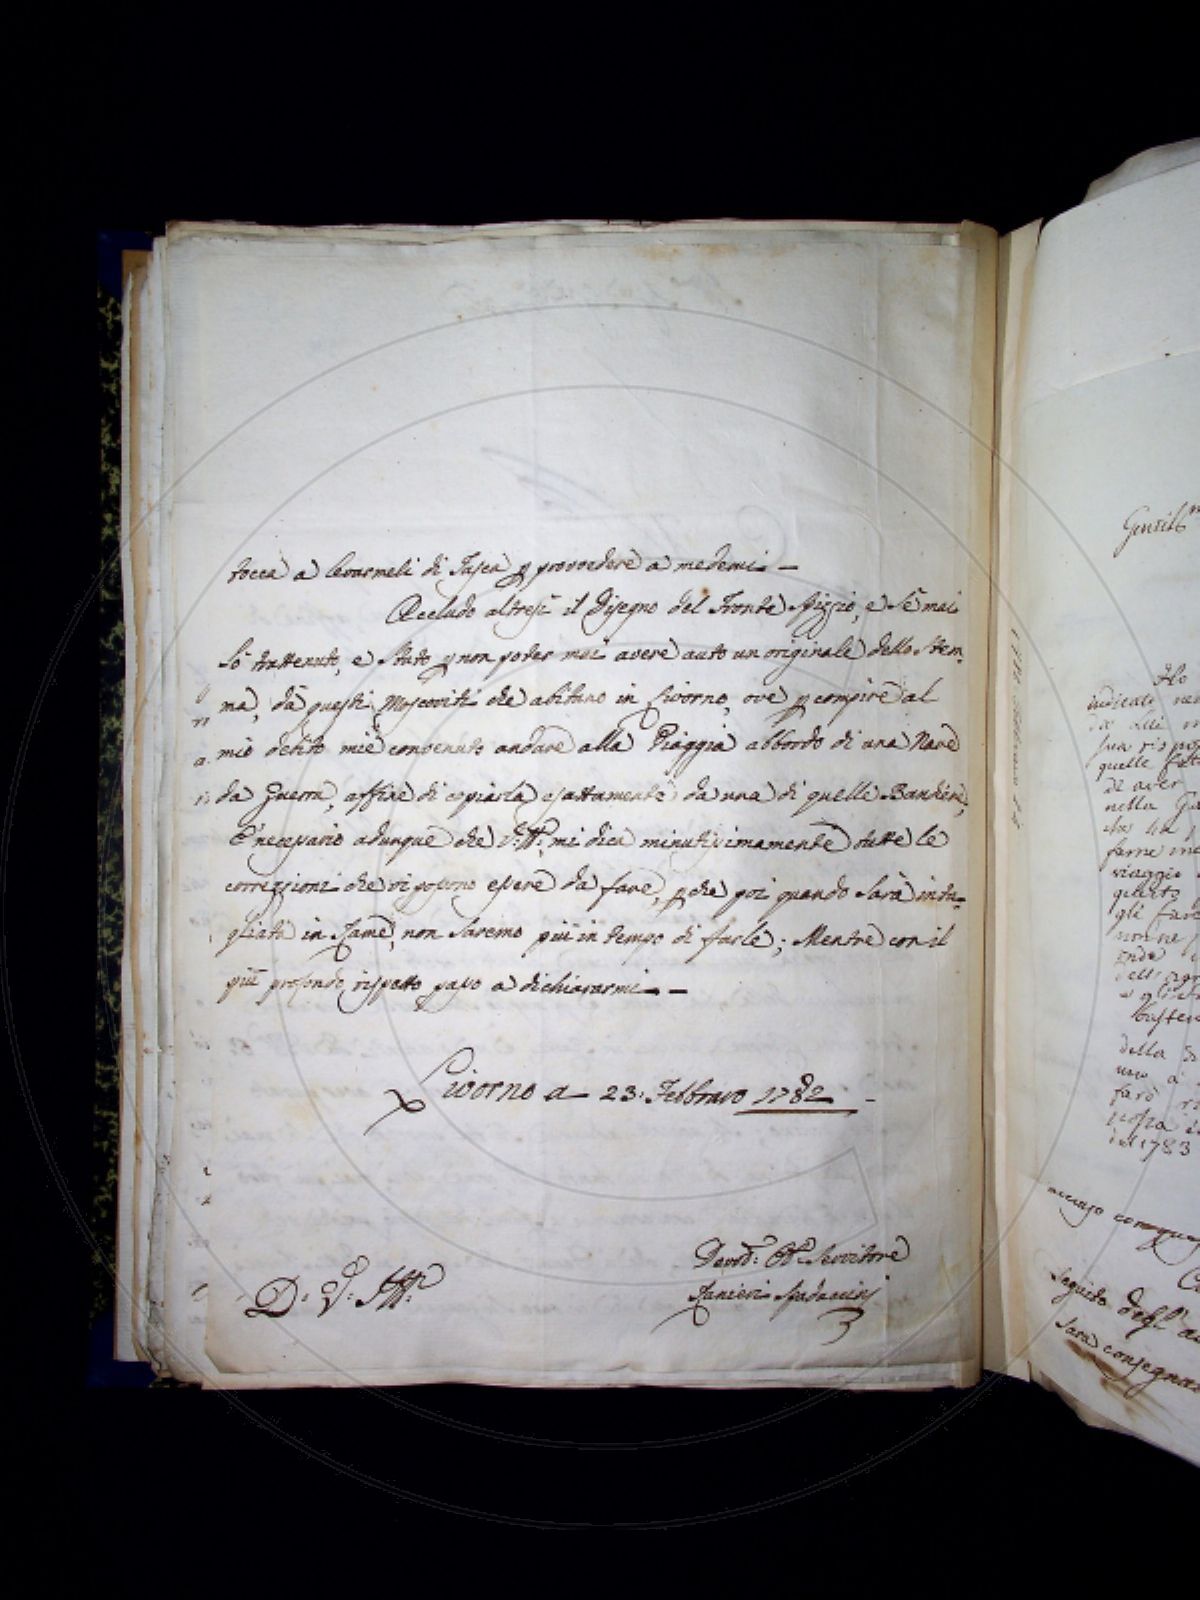 tocca a levarmeli di Tasca p provvedere a medemi –
Accludo altresì il Disegno del Fronte Spizzio, e Sè mai
lò trattenuto, e Stato p non poder mai avere auto un originale dello Stem-
ma, dà questi Moscoviti che abitano in Livorno, ove p compire al
mio debito miè convenuto andare alla Piaggia abbordo di una Nave
da Guerra, affine di copiarla esattamente da una di quelle Bandiere,
E' necesario adunque che V: Ill: mi dica minutisimamente tutte le
correzzioni che vi posono esere da fare, p che poi quando Sarà inta-
gliato in Rame, non Saremo più in tempo di farle; Mentre con il
più profondo rispetto paso a dichiararmi –
Livorno a 23. Febbraio 1782
D. V: Ill:
Devot: Ob: Servitore
Ranieri Spadaccini
Gentil
Ho
indicato
sua rispos
quelle
di aver
nella
che ha
farne
viaggio
gli
non ne
della
uno a
farò
copia
del 1783
Seguito degl'
Sarà consegnato